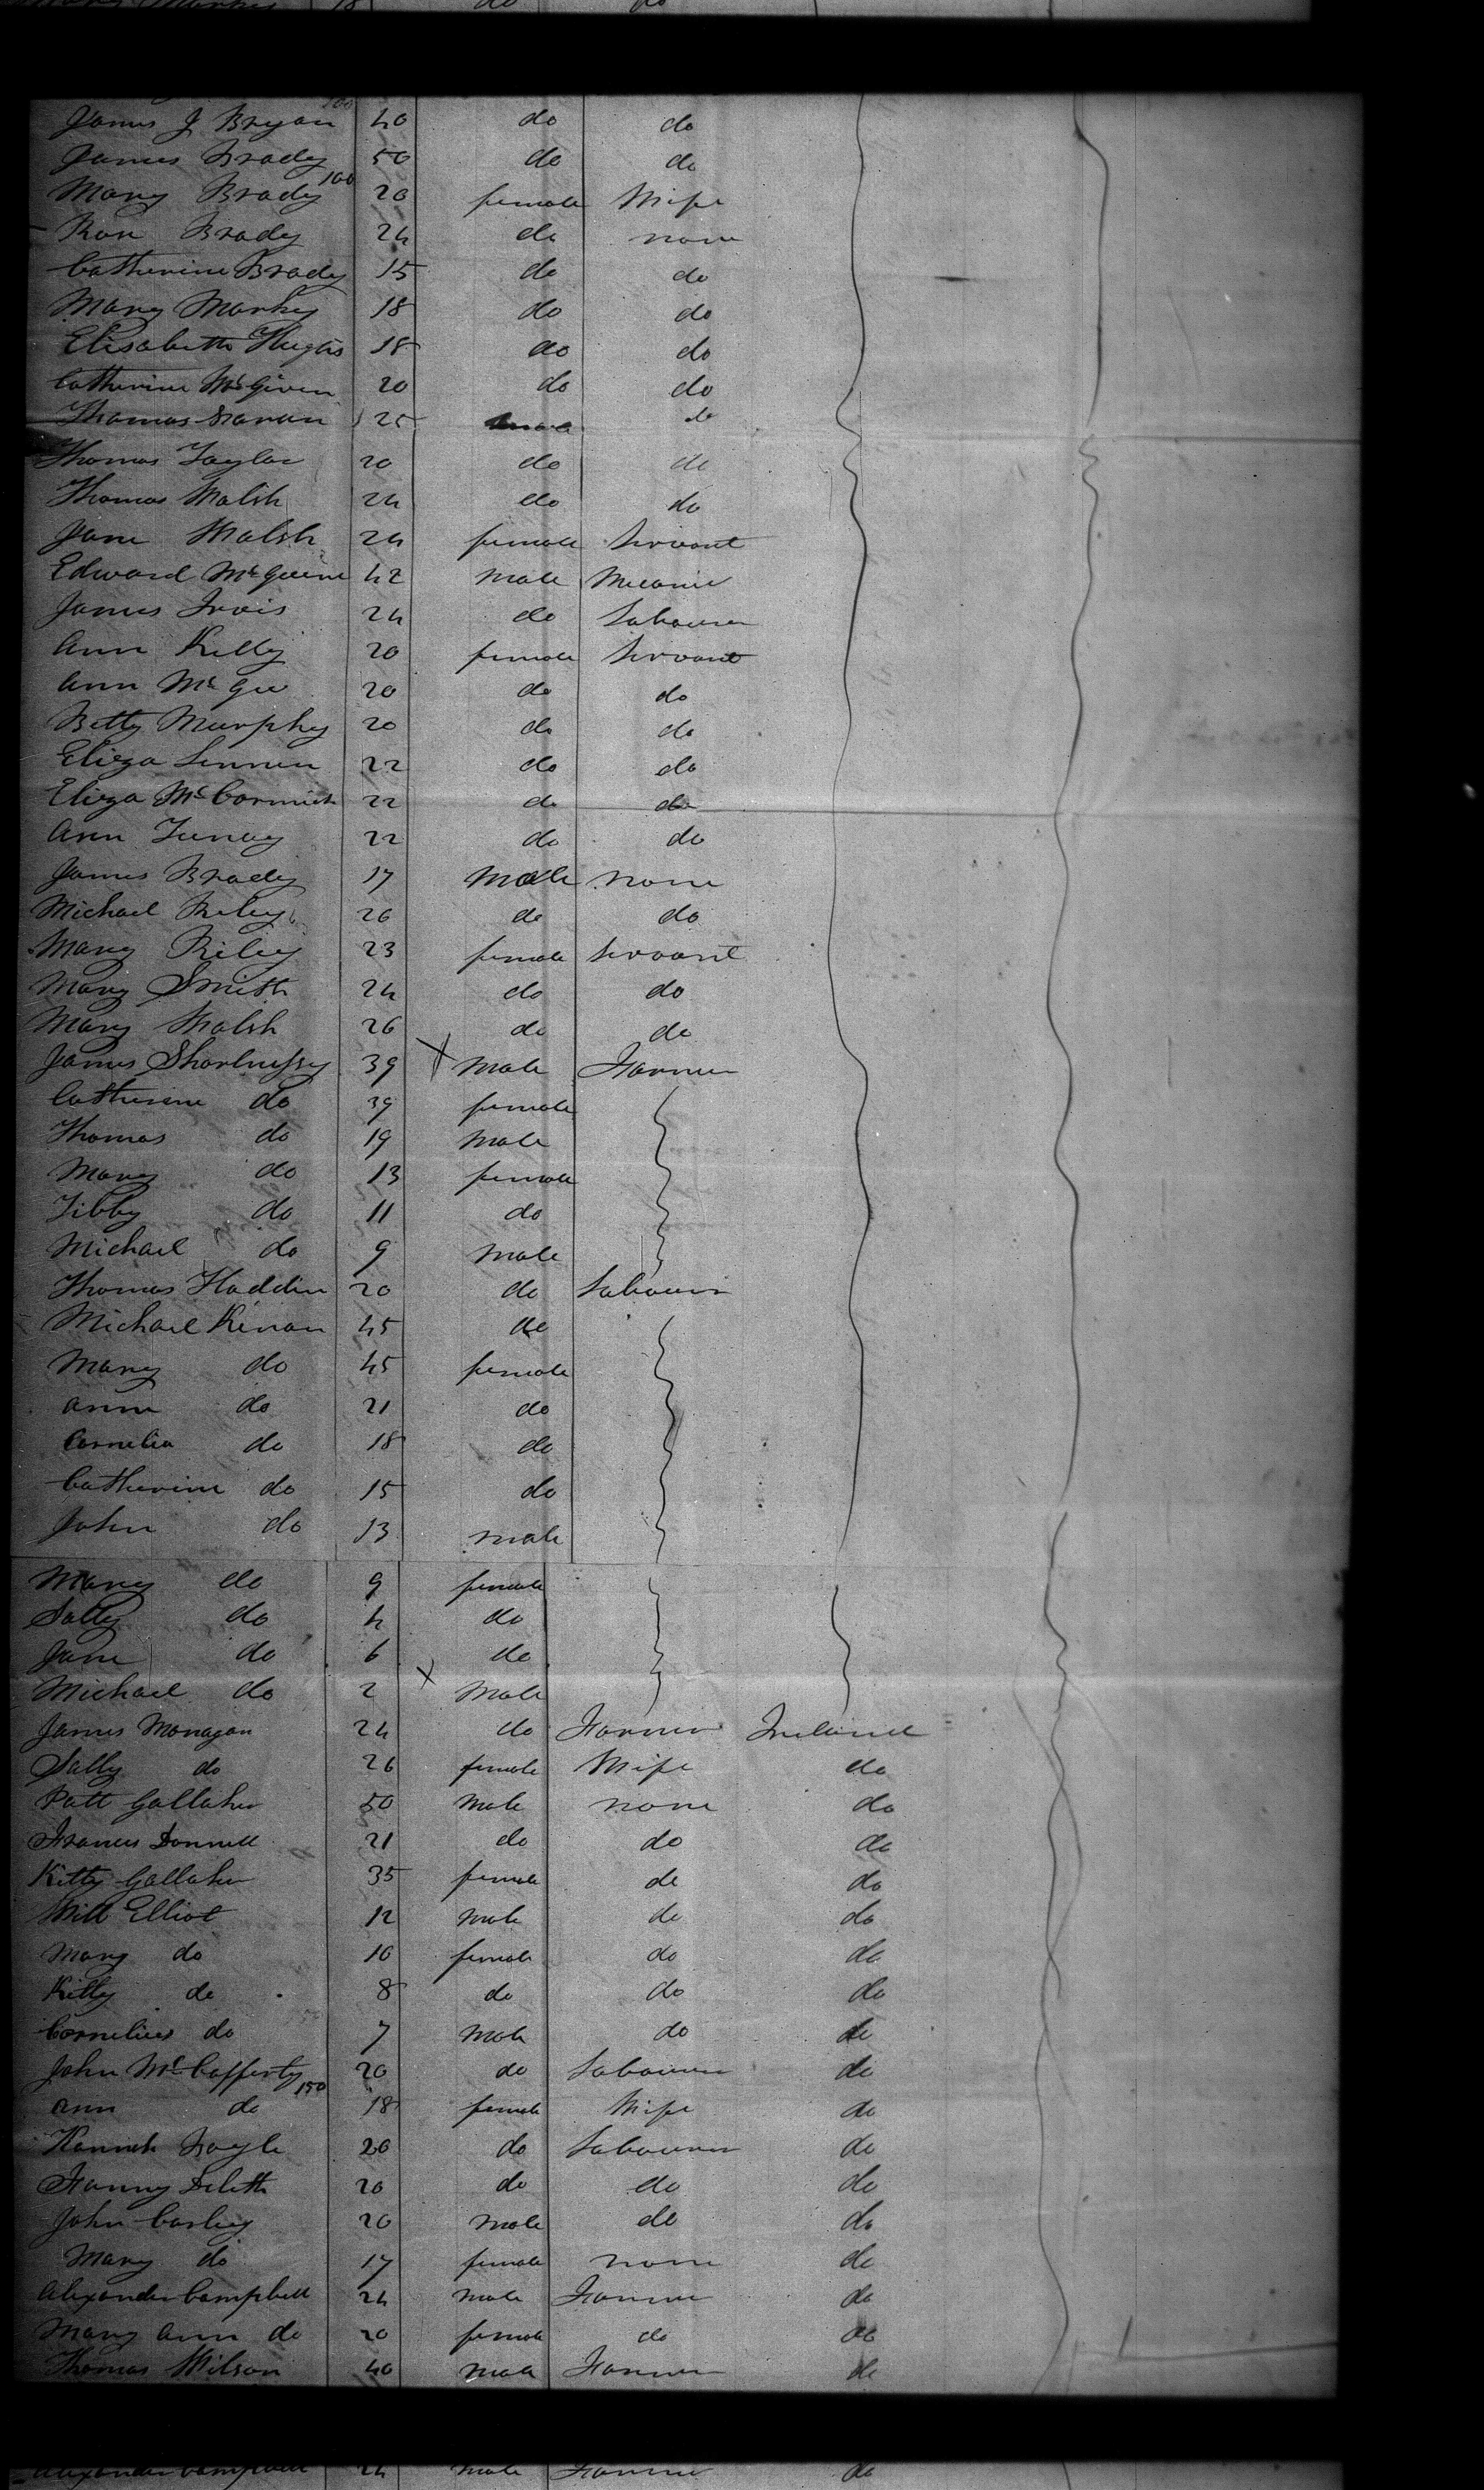 James J Bryan 40 do do
James Brady 50 do do
Mary Brady 100 20 female Wife
Rose Brady 24 do none
Catherine Brady 15 do do
Mary Markey 18 do do
Elisabeth Hughs 18 do do
Catherine McGiven 20 do do
Thomas 25 male do
Thomas Taylor 20 do do
Thomas Walsh 24 do do
Jane Walsh 24 female Servant
Edward McGuine 42 male Mecanic
James Irvis 24 do Labourer
Ann Kelly 20 female Servant
Ann McGee 20 do do
Betty Murphy 20 do do
Eliza Lennen 22 do do
Eliza McCormick 22 do do
Ann 22 do do
James Brady 17 Male none
Michael Riley 26 do do
Mary Riley 23 female Servant
Mary Smith 24 do do
Mary Walsh 26 do do
James Sharlnessy 39 X Male Farmer
Catherine do 39 female
Thomas do 19 Male
Mary do 13 female
Tibby do 11 do
Michael do 9 Male
Thomas Haddin 20 do Labourer
Michael Kinan 45 do
Mary do 45 female
Anne do 21 do
Cornelia do 18 do
Catherine do 15 do
John do 13 male
Mary do 9 female
Sally do 4 do
Jane do 6 do
Michael do 2 X Male
James Monagan 24 do Farmer Ireland
Sally do 26 female Wife do
Patt Gallaher 50 Male none do
Francis Donnell 21 do do do
Kitty Gallaher 35 female do do
Will Elliot 12 male do do
Mary do 10 female do do
Kitty do 8 do do do
Cornelius do 7 Male do do
John McCafferty 20 do Labourer do
Ann do 150 18 female Wife do
Hannah Boyle 20 do Labourer do
Fanny 20 do do do
John Carley 20 Male do do
Mary do 17 female none do
Alexander Campbell 24 male Farmer do
Mary Ann do 20 female do do
Thomas Wilson 40 Male Farmer do
Alexander Campbell 24 Male Farmer do